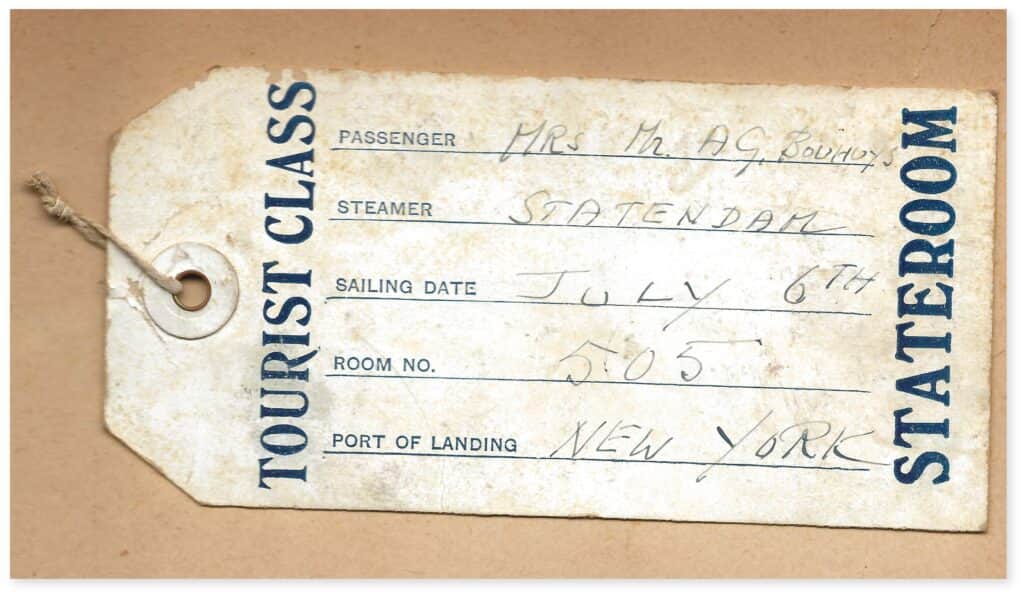 TOURIST CLASS
PASSENGER MRS Mr. A G. BOUHUYS
STEAMER STATENDAM
SAILING DATE JULY 6TH
ROOM NO. 505
PORT OF LANDING NEW YORK
STATEROOM